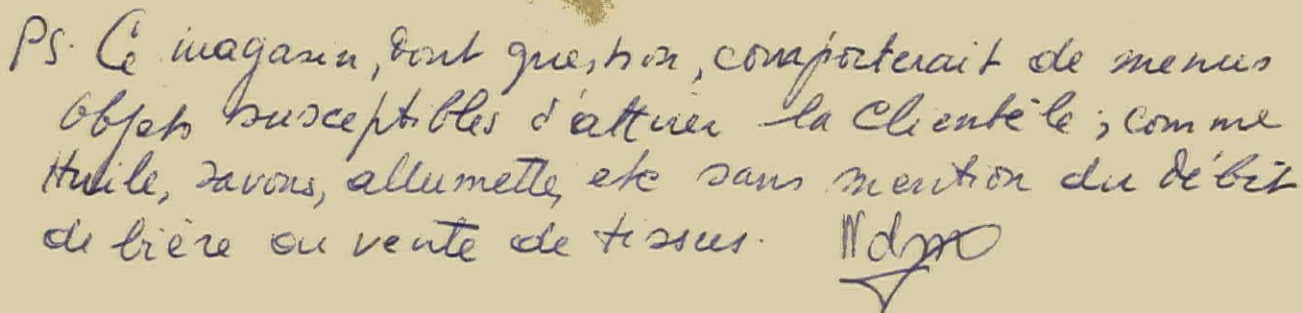 PS. Ce magasin, dont question, comporterait de menus
objets susceptibles d'attirer la clientèle; comme
Huile, savons, allumette, etc sans mention du débit
de bière ou vente de tissus.